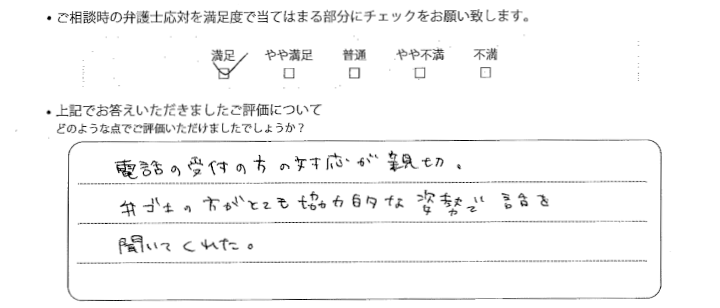 • ご相談時の弁護士応対を満足度で当てはまる部分にチェックをお願い致します。
満足 やや満足 普通 やや不満 不満
☑ □ □ □ □
• 上記でお答えいただきましたご評価について
どのような点でご評価いただけましたでしょうか？
電話の受付の方の対応が親切。
弁ゴ士の方がとても協力的な姿勢で話を
聞いてくれた。